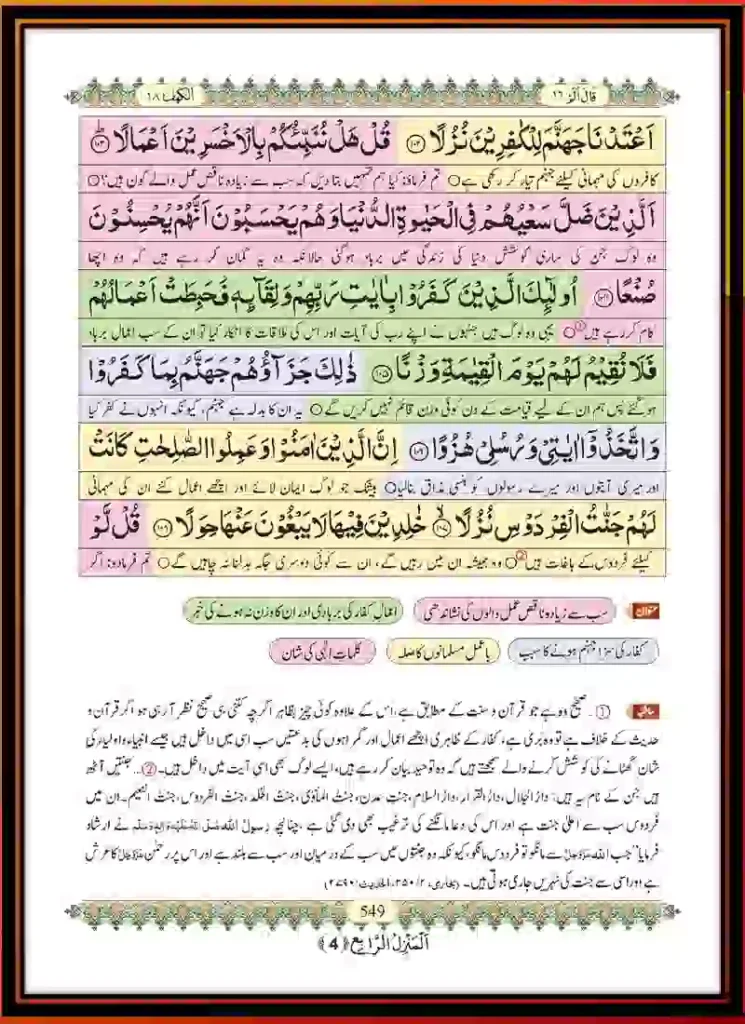 قال الم ١٦
الكهف ١٨
اَعْتَدْنَا جَهَنَّمَ لِلْكٰفِرِيْنَ نُزُلًا ۝۱۰۲ قُلْ هَلْ نُنَبِّئُكُمْ بِالْاَخْسَرِيْنَ اَعْمَالًا ۝۱۰۳ؕ
کافروں کی مہمانی کیلئے جہنم تیار کر رکھی ہے○ تم فرماؤ: کیا ہم تمہیں بتا دیں کہ سب سے زیادہ ناقص عمل والے کون ہیں؟○
اَلَّذِيْنَ ضَلَّ سَعْيُهُمْ فِى الْحَيٰوةِ الدُّنْيَا وَهُمْ يَحْسَبُوْنَ اَنَّهُمْ يُحْسِنُوْنَ
وہ لوگ جن کی ساری کوشش دنیا کی زندگی میں برباد ہوگئی حالانکہ وہ یہ گمان کر رہے ہیں کہ وہ اچھا
صُنْعًا ۝۱۰۴ اُولٰٓئِكَ الَّذِيْنَ كَفَرُوْا بِاٰيٰتِ رَبِّهِمْ وَلِقَآئِهٖ فَحَبِطَتْ اَعْمَالُهُمْ
کام کر رہے ہیں○① یہی وہ لوگ ہیں جنہوں نے اپنے رب کی آیات اور اس کی ملاقات کا انکار کیا تو ان کے سب اعمال برباد
فَلَا نُقِيْمُ لَهُمْ يَوْمَ الْقِيٰمَةِ وَزْنًا ۝۱۰۵ ذٰلِكَ جَزَآؤُهُمْ جَهَنَّمُ بِمَا كَفَرُوْا
ہوگئے پس ہم ان کے لیے قیامت کے دن کوئی وزن قائم نہیں کریں گے○ یہ ان کا بدلہ ہے جہنم، کیونکہ انہوں نے کفر کیا
وَاتَّخَذُوْۤا اٰيٰتِىْ وَرُسُلِىْ هُزُوًا ۝۱۰۶ اِنَّ الَّذِيْنَ اٰمَنُوْا وَعَمِلُوا الصّٰلِحٰتِ كَانَتْ
اور میری آیتوں اور میرے رسولوں کو ہنسی مذاق بنالیا○ بیشک جو لوگ ایمان لائے اور اچھے اعمال کئے ان کی مہمانی
لَهُمْ جَنّٰتُ الْفِرْدَوْسِ نُزُلًا ۝۱۰۷ۙ خٰلِدِيْنَ فِيْهَا لَا يَبْغُوْنَ عَنْهَا حِوَلًا ۝۱۰۸ قُلْ لَّوْ
کیلئے فردوس کے باغات ہیں○② وہ ہمیشہ ان میں رہیں گے، ان سے کوئی دوسری جگہ بدلنا نہ چاہیں گے○ تم فرما دو: اگر
عنوان سب سے زیادہ ناقص عمل والوں کی نشاندھی اعمالِ کفار کی بربادی اور ان کا وزن نہ ہونے کی خبر
کفار کی سزا جہنم ہونے کا سبب باعمل مسلمانوں کا صلہ کلماتِ الٰہی کی شان
حاشیہ ①...صحیح وہ ہے جو قرآن و سنت کے مطابق ہے، اس کے علاوہ کوئی چیز بظاہر اگرچہ کتنی ہی صحیح نظر آ رہی ہو اگر قرآن و
حدیث کے خلاف ہے تو وہ بری ہے، کفار کے ظاہری اچھے اعمال اور گمراہوں کی بدعتیں سب اسی میں داخل ہیں جیسے انبیاء و اولیاء کی
شان گھٹانے کی کوشش کرنے والے سمجھتے ہیں کہ وہ توحید بیان کر رہے ہیں، ایسے لوگ بھی اسی آیت میں داخل ہیں۔ ②...جنتیں آٹھ
ہیں جن کے نام یہ ہیں: دارُ الجلال، دارُ القرار، دارُ السلام، جنتِ عدن، جنتُ الماْویٰ، جنتُ الخلد، جنتُ الفردوس، جنتُ النعیم۔ ان میں
فردوس سب سے اعلیٰ جنت ہے اور اس کی دعا مانگنے کی ترغیب بھی دی گئی ہے، چنانچہ رسولُ اللہ صَلَّی اللہُ عَلَیْہِ وَاٰلِہٖ وَسَلَّمَ نے ارشاد
فرمایا "جب اللہ عَزَّوَجَلَّ سے مانگو تو فردوس مانگو، کیونکہ وہ جنتوں میں سب کے درمیان اور سب سے بلند ہے اور اس پر رحمٰن عَزَّوَجَلَّ کا عرش
ہے اور اسی سے جنت کی نہریں جاری ہوتی ہیں۔ (بخاری، ۲/۲۵۰، الحدیث: ۲۷۹۰)
549
اَلْمَنْزِلُ الرَّابِع ﴿4﴾